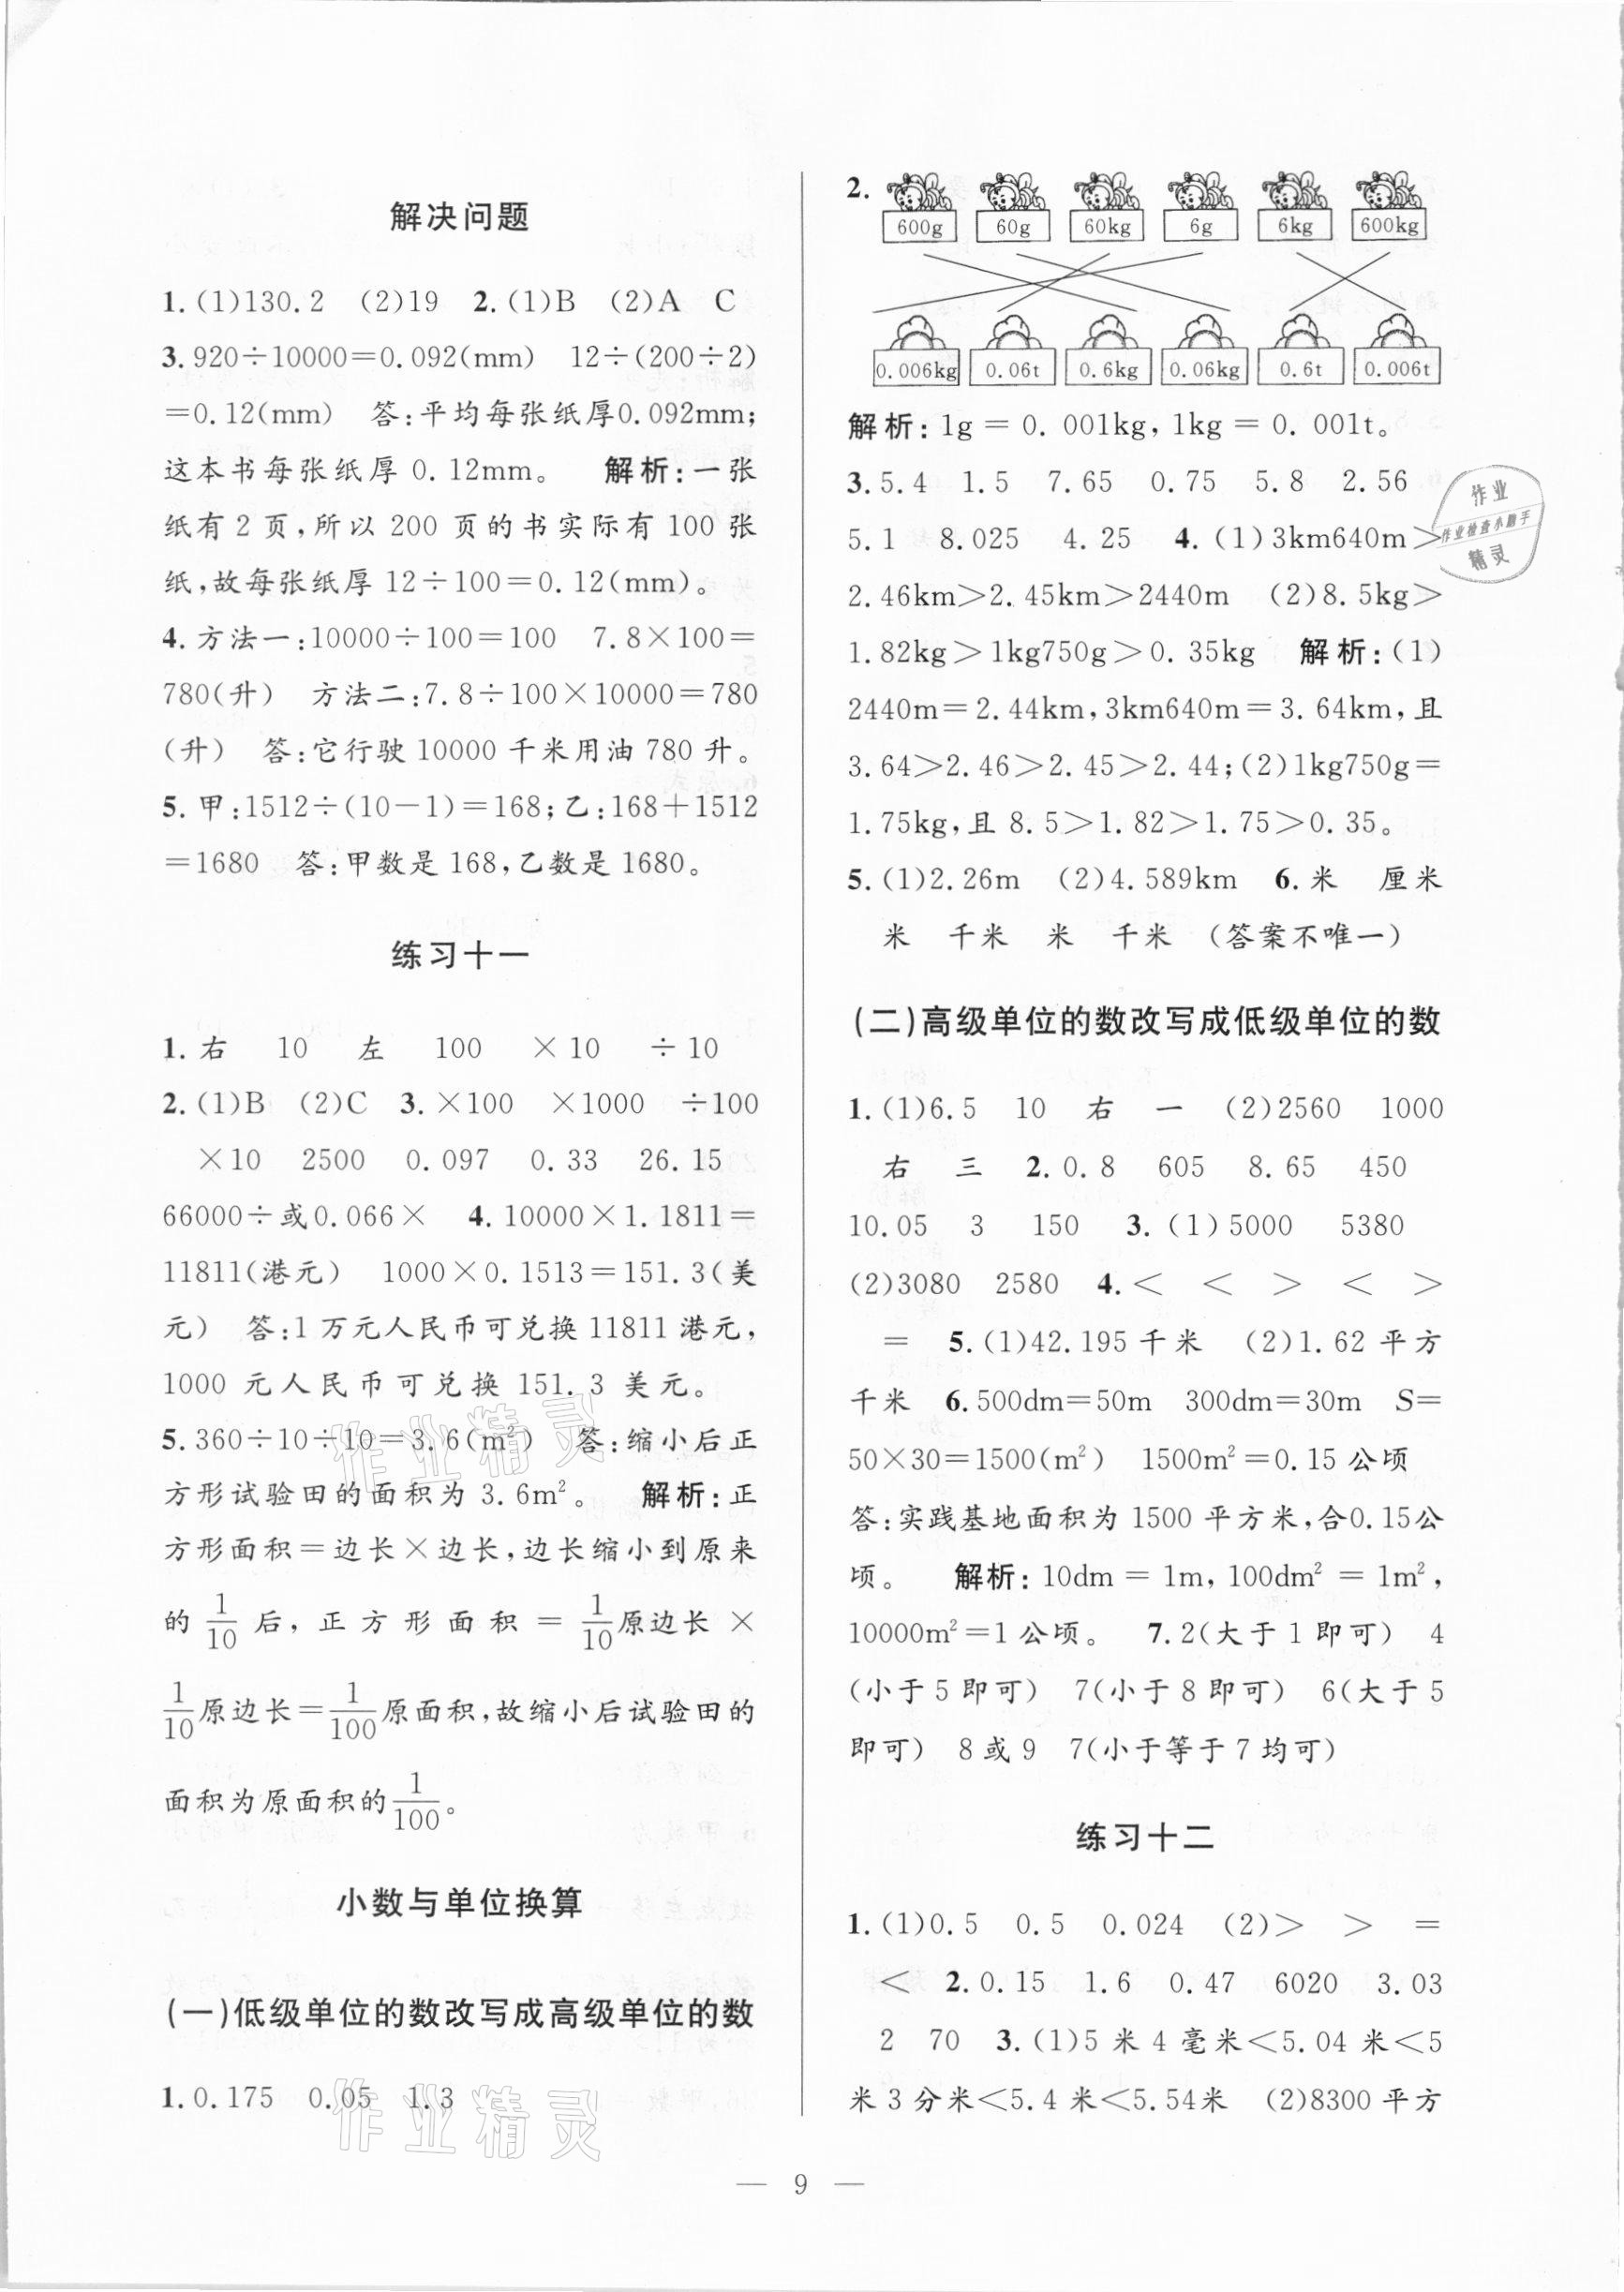 解决问题
1.(1)130.2 (2)19 2.(1)B (2)A C
3.920÷10000=0.092(mm) 12÷(200÷2)
=0.12(mm) 答:平均每张纸厚0.092mm;
这本书每张纸厚 0.12mm。 解析:一张
纸有 2 页,所以 200 页的书实际有 100 张
纸,故每张纸厚 12÷100=0.12(mm)。
4.方法一:10000÷100=100 7.8×100=
780(升) 方法二:7.8÷100×10000=780
(升) 答:它行驶 10000 千米用油 780 升。
5.甲:1512÷(10-1)=168;乙:168+1512
=1680 答:甲数是 168,乙数是 1680。
练习十一
1.右 10 左 100 ×10 ÷10
2.(1)B (2)C 3.×100 ×1000 ÷100
×10 2500 0.097 0.33 26.15
66000÷或0.066× 4.10000×1.1811=
11811(港元) 1000×0.1513=151.3(美
元) 答:1 万元人民币可兑换 11811 港元,
1000 元人民币可兑换 151.3 美元。
5.360÷10÷10=3.6(m²) 答:缩小后正
方形试验田的面积为 3.6m²。 解析:正
方形面积=边长×边长,边长缩小到原来
的 1/10 后,正方形面积=1/10原边长×
1/10原边长=1/100原面积,故缩小后试验田的
面积为原面积的1/100。
小数与单位换算
(一)低级单位的数改写成高级单位的数
1.0.175 0.05 1.3
2.
600g 60g 60kg 6g 6kg 600kg
0.006kg 0.06t 0.6kg 0.06kg 0.6t 0.006t
解析:1g=0.001kg,1kg=0.001t。
3.5.4 1.5 7.65 0.75 5.8 2.56
5.1 8.025 4.25 4.(1)3km640m>
2.46km>2.45km>2440m (2)8.5kg>
1.82kg>1kg750g>0.35kg 解析:(1)
2440m=2.44km,3km640m=3.64km,且
3.64>2.46>2.45>2.44;(2)1kg750g=
1.75kg,且 8.5>1.82>1.75>0.35。
5.(1)2.26m (2)4.589km 6.米 厘米
米 千米 米 千米 (答案不唯一)
(二)高级单位的数改写成低级单位的数
1.(1)6.5 10 右 一 (2)2560 1000
右 三 2.0.8 605 8.65 450
10.05 3 150 3.(1)5000 5380
(2)3080 2580 4.< < > < >
= 5.(1)42.195千米 (2)1.62平方
千米 6.500dm=50m 300dm=30m S=
50×30=1500(m²) 1500m²=0.15 公顷
答:实践基地面积为 1500 平方米,合0.15公
顷。 解析:10dm=1m,100dm²=1m²,
10000m²=1 公顷。 7.2(大于 1 即可) 4
(小于 5 即可) 7(小于 8 即可) 6(大于 5
即可) 8 或 9 7(小于等于 7 均可)
练习十二
1.(1)0.5 0.5 0.024 (2)> > =
< 2.0.15 1.6 0.47 6020 3.03
2 70 3.(1)5 米 4 毫米<5.04 米<5
米 3 分米<5.4 米<5.54米 (2)8300 平方
— 9 —
作业
作业检查小助手
精灵
作业精灵
作业精灵